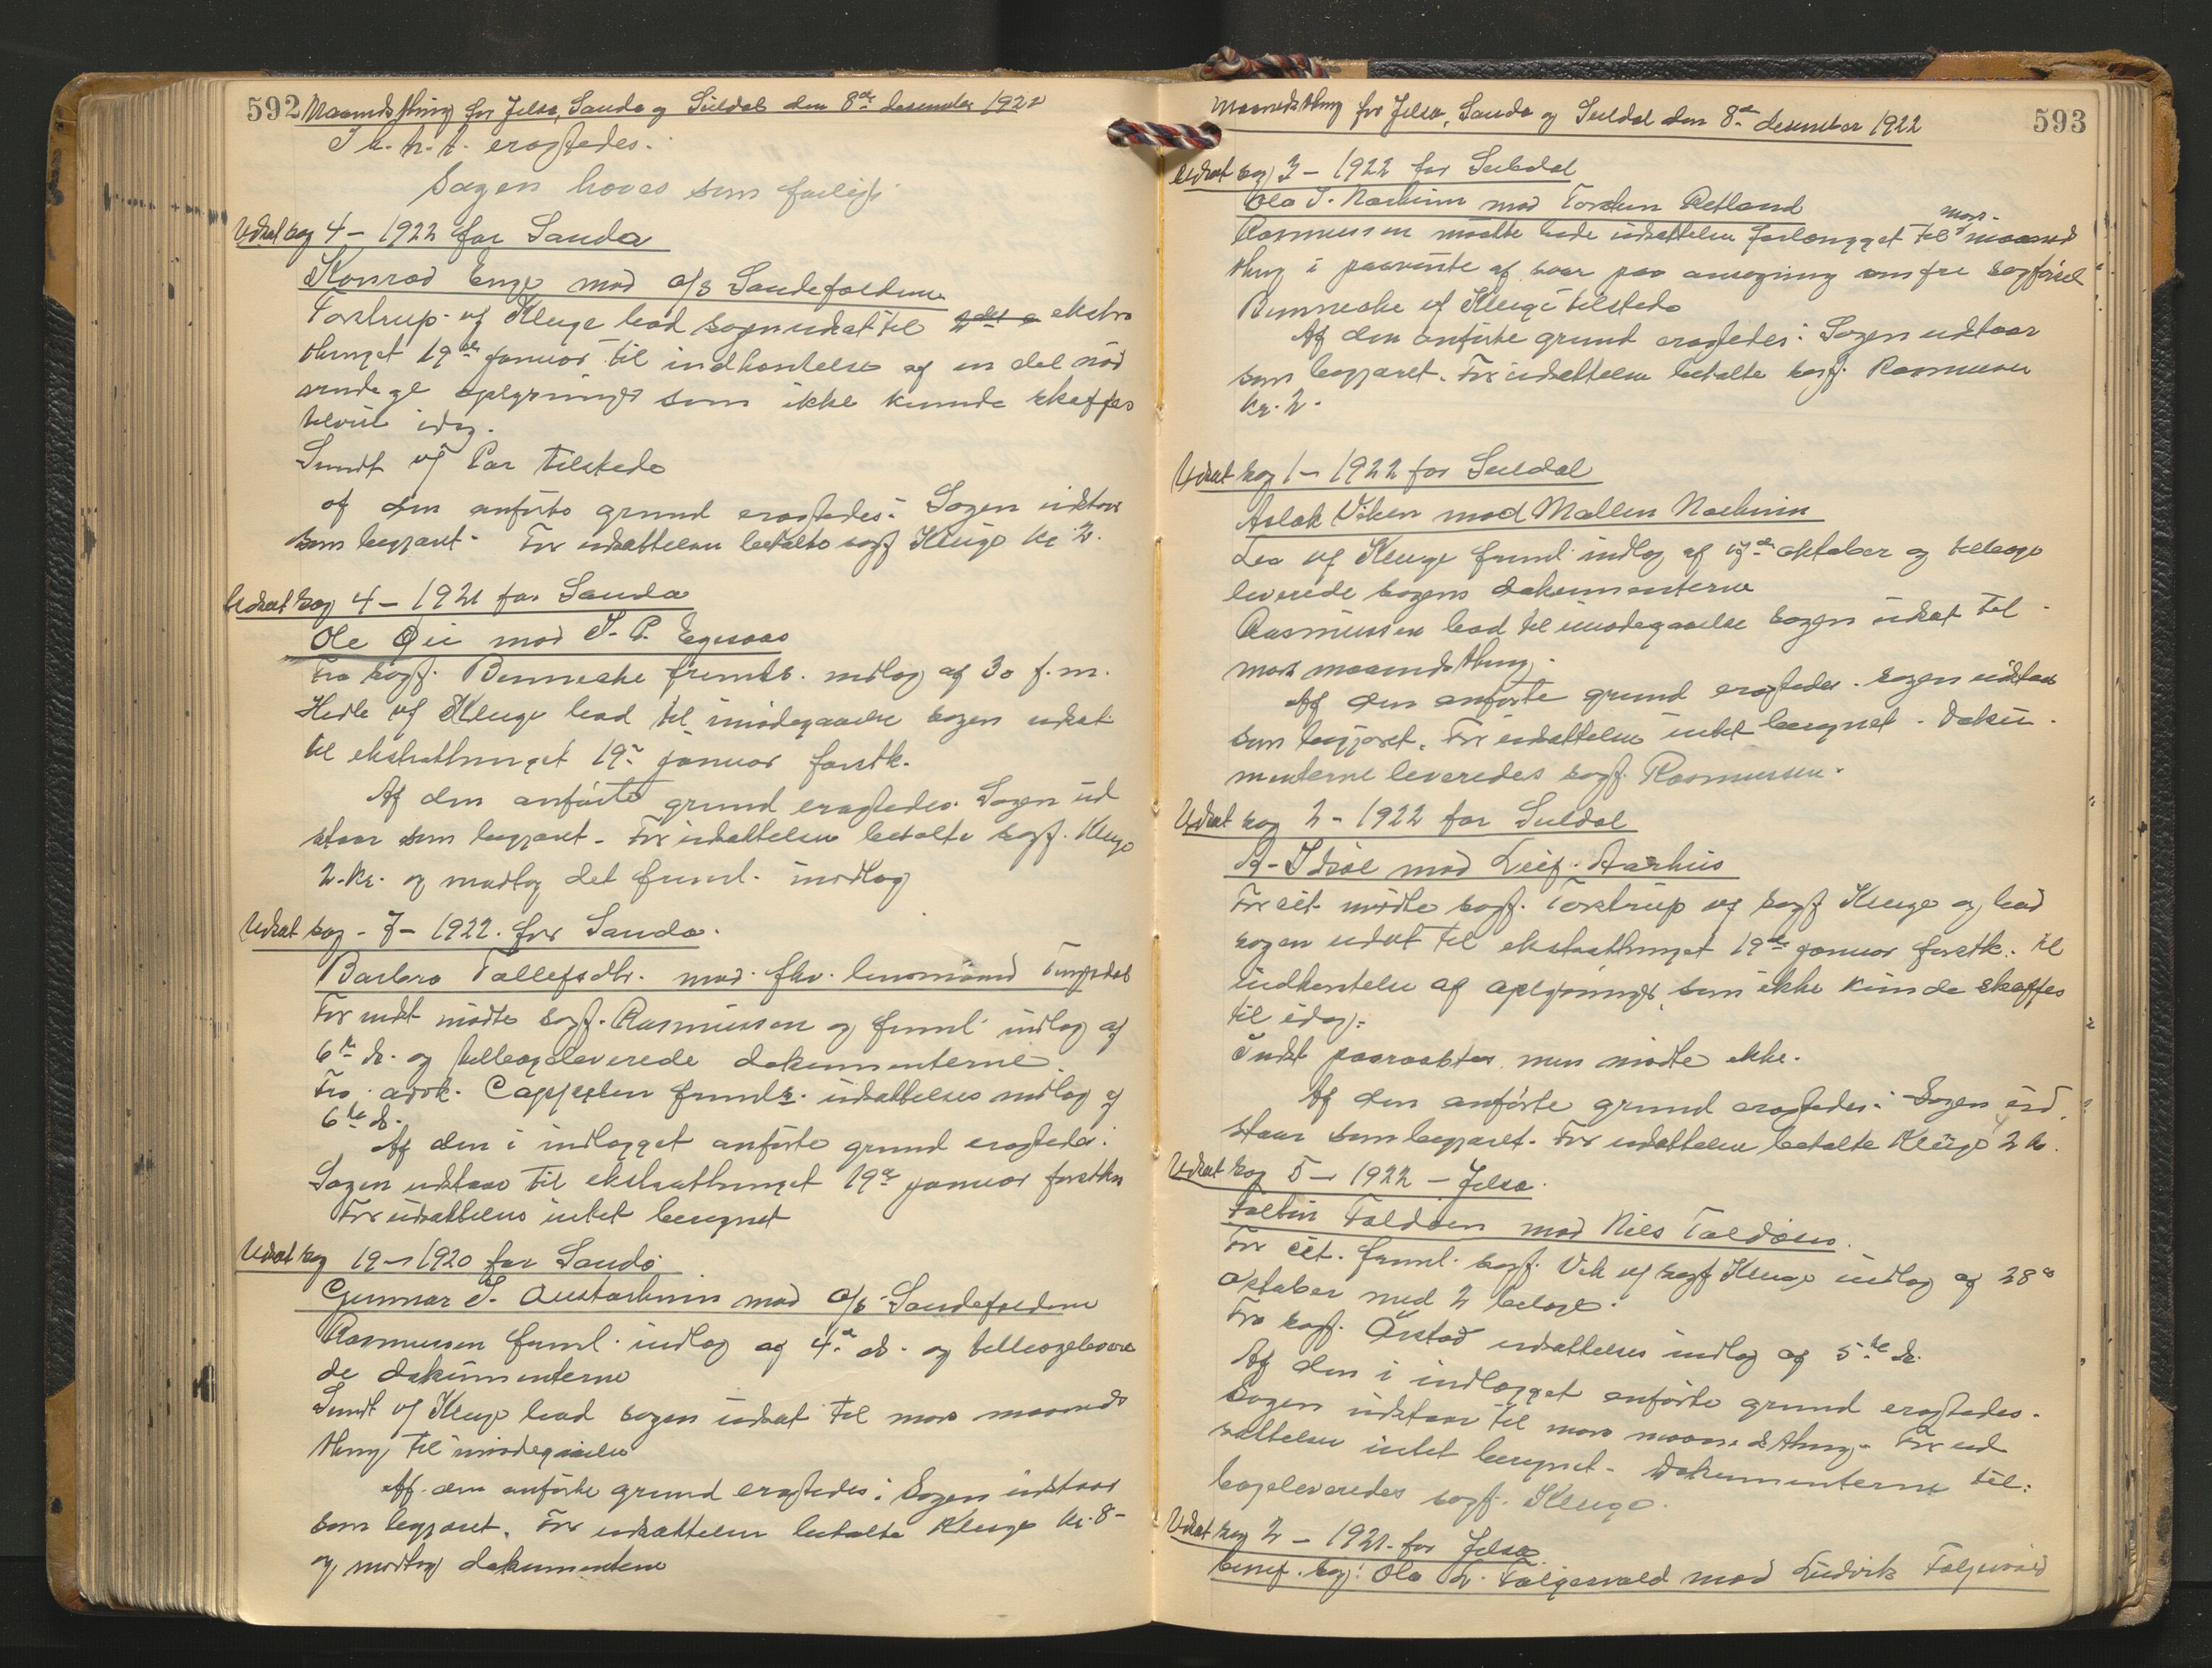 592 Maanedsthing for Jelsa, Sauda og Suldal den 8de desember 1922
I h. h. t. eragtedes.
Sagen hæves som forligt.
Udsat sag 4 - 1922 for Sauda
Konrad Enge mod a/s Saudefaldene
Torstrup v/ Kluge bad sagen udsat til ekstra
thinget 19de januar til indhentelse af en del nød
vendige oplysninger som ikke kunde skaffes
tilveie idag.
Sundt v/ Par tilstede
af den anførte grund eragtedes: Sagen udstaar
som begjæret. For udsættelsen betalte sagf Kluge kr 2.
Udsat sag 4 - 1921 for Sauda
Ole Øie mod S. P. Egesaas
Fra sagf. Benneche fremls. indlæg af 30 f.m.
Hedle v/ Kluge bad til imødegaaelse sagen udsat
til ekstrathinget 19. januar førstk.
Af den anførte grund eragtedes. Sagen ud
staar som begjæret. For udsættelsen betalte sagf. Kluge
2. kr. og modtog det freml. indlæg
Udsat sag - 7 - 1922. for Sauda.
Barbro Tollefsdtr. mod fhv. lensmand
For indst mødte sagf. Rasmussen og freml. indlæg af
6te ds. og tilbageleverede dokumenterne
Fra advk. Cappelen fremls. udsættelses indlæg af
6te ds.
Af den i indlægget anførte grund eragtedes:
Sagen udstaar til ekstrathinget 19de januar førstkn
For udsættelsen intet beregnet
Udsat sag 19 - 1920 for Sauda
Gunnar S. Austarheim mod a/s Saudefaldene
Rasmussen freml. indlæg af 4de ds. og tilbagelevere
de dokumenterne
Sundt v/ Kluge bad sagen udsat til mars maaneds
thing til imødegaaelse
Af den anførte grund eragtedes: Sagen udstaar
som begjæret. For udsættelsen betalte Kluge kr. 8-
og modtog dokumentene
Maanedsthing for Jelsa, Sauda og Suldal den 8de desember 1922 593
Udsat sag 3 - 1922 for Suldal
Ola T. Nærheim mod Torsten Retland
Rasmussen mødte bade udsættelsen forlænget til mars- maaneds
thing i paavente af svar paa ansøgning om fri sagførsel
Benneche v/ Kluge tilstede
Af den anførte grund eragtedes: Sagen udstaar
som begjæret. For udsættelsen betalte sagf. Rasmussen
kr. 2.
Udsat sag 1 - 1922 for Suldal
Aslak Viken mod Mallin Nærheim
Lea v/ Kluge freml. indlæg af oktober og tilbage
leverede sagens dokumenterne
Rasmussen bad til imødegaaelse sagen udsat til
mars maanedsthing.
Af den anførte grund eragtedes. Sagen udstaar
som begjæret. For udsættelsen intet beregnet. Doku-
menterne leveredes sagf. Rasmussen.
Udsat sag 2 - 1922 for Suldal
mod Leif Aarhus
For cit. mødte sagf. Torstrup v/ sagf Kluge og bad
sagen udsat til ekstrathinget 19de januar førstk. til
indhentelse af oplysninger, som ikke kunde skaffes
til idag.
Indst paaraabtes men mødte ikke.
Af den anførte grund eragtedes: Sagen ud
staar som begjæret. For udsættelsen betalte Kluge 2 kr.
Udsat sag 5 - 1922 - Jelsa.
Foldøen mod Nils Foldøen.
For cit. freml. sagf. Vik v/ sagf Kluge indlæg af 28de
oktober med 2 bilage.
Fra sagf. Ørstad udsættelses indlæg af 5te ds.
Af den i indlægget anførte grund eragtedes.
Sagen udstaar til mars maanedsthing. For ud
sættelsen intet beregnet. Dokumenterne til-
bageleveredes sagf. Kluge.
Udsat sag 2 - 1921. for Jelsa
benef. sag: Ola L. Følgesvold mod Ludvik Følgesvold